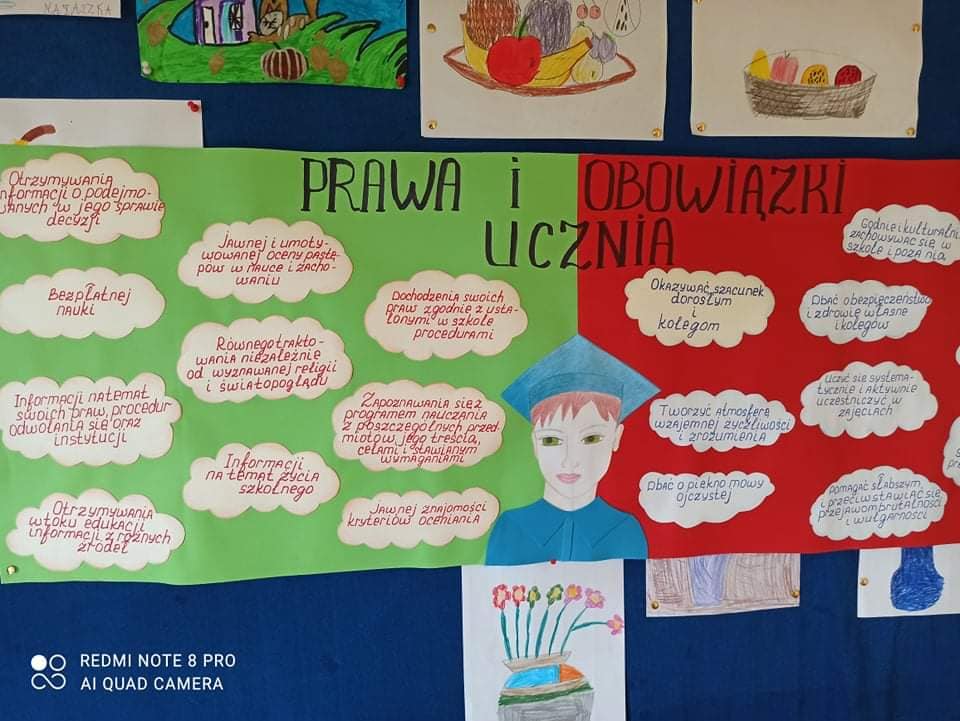 NATASZKA
PRAWA i OBOWIĄZKI
UCZNIA
Otrzymywania
informacji o podejmo-
wanych w jego sprawie
decyzji
Bezpłatnej
nauki
Informacji na temat
swoich praw, procedur
odwołania się oraz
instytucji
Otrzymywania
w toku edukacji
informacji z różnych
źródeł
Jawnej i umoty-
wowanej oceny postę-
pów w nauce i zacho-
waniu
Równego trakto-
wania niezależnie
od wyznawanej religii
i światopoglądu
Informacji
na temat życia
szkolnego
Dochodzenia swoich
praw zgodnie z usta-
lonymi w szkole
procedurami
Zapoznawania się z
programem nauczania
z poszczególnych przed-
miotów, jego treścią,
celami i stawianym
wymaganiami
Jawnej znajomości
kryteriów oceniania
Okazywać szacunek
dorosłym
i
kolegom
Tworzyć atmosferę
wzajemnej życzliwości
i zrozumienia
Dbać o piękno mowy
ojczystej
Godnie i kulturalni
zachowywać się w
szkole i poza nią
Dbać o bezpieczeństwo
i zdrowie własne
i kolegów
Uczyć się systema-
tycznie i aktywnie
uczestniczyć w
zajęciach
Pomagać słabszym
i przeciwstawiać się
przejawom brutalności
i wulgarności
REDMI NOTE 8 PRO
AI QUAD CAMERA